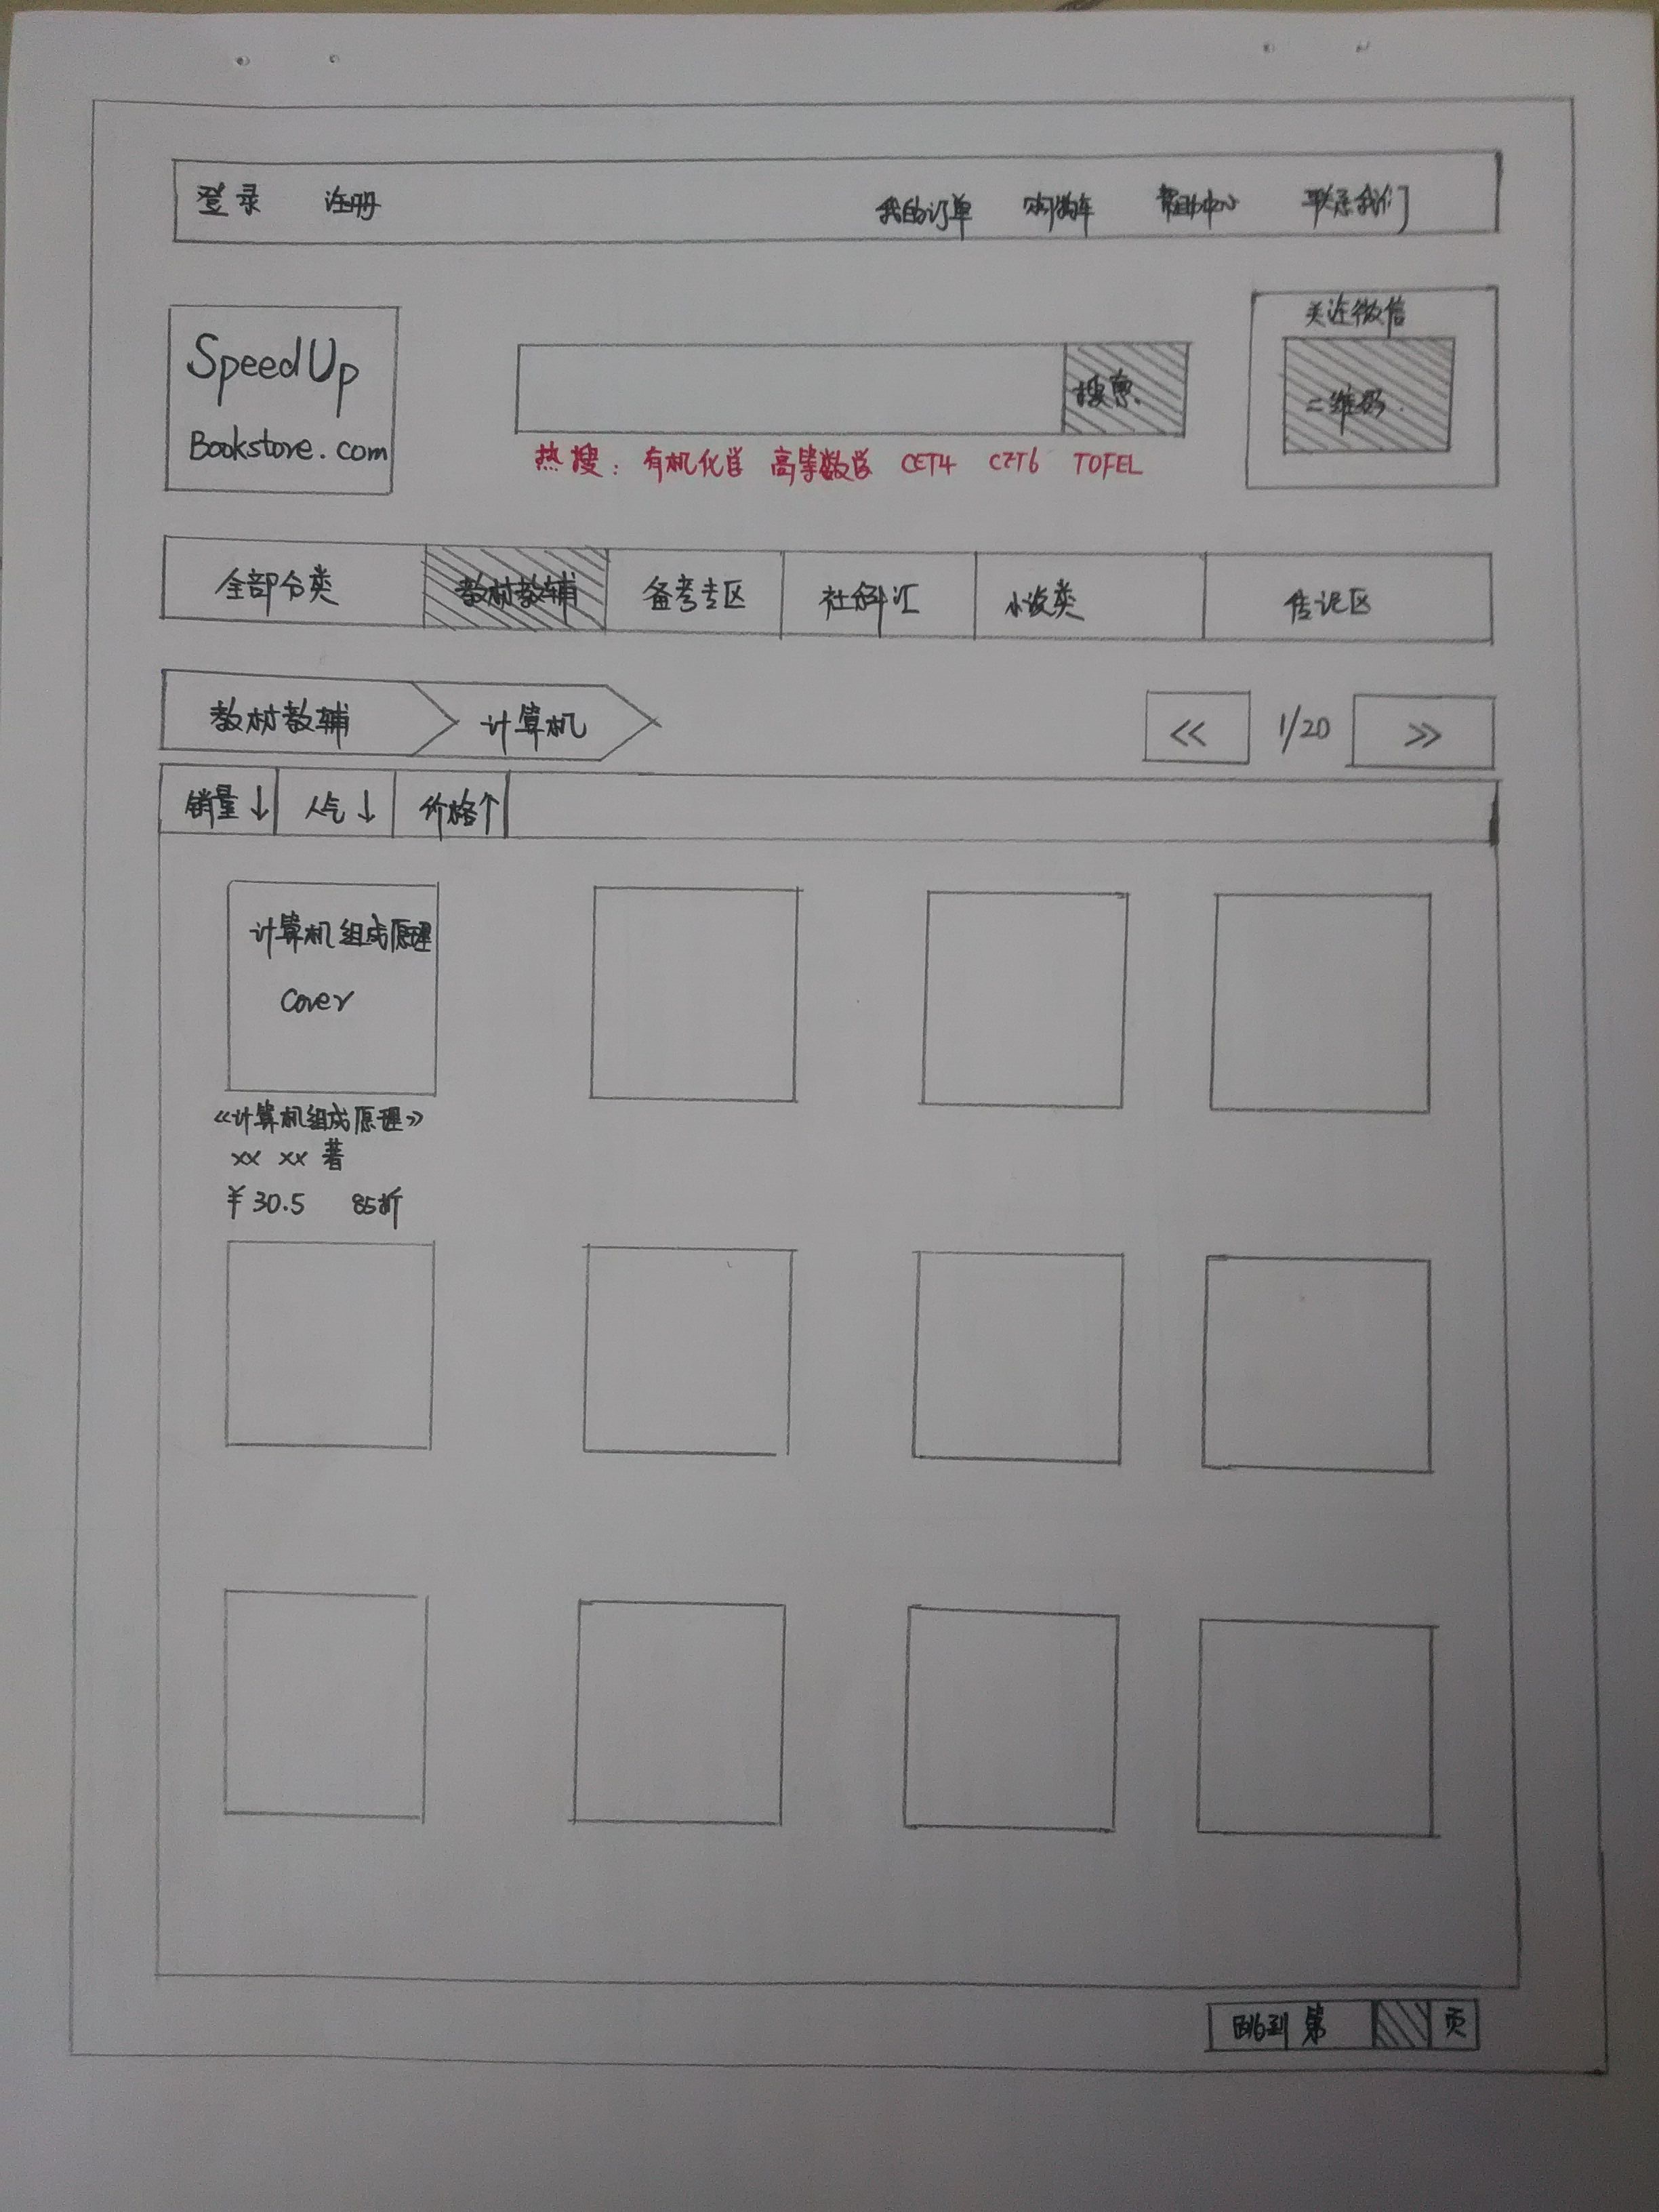 登录 注册 我的订单 购物车 帮助中心 联系我们
SpeedUp
Bookstore.com
搜索
关注微信
二维码
热搜: 有机化学 高等数学 CET4 CET6 TOFEL
全部分类 教材教辅 备考专区 社科汇 小说类 传记区
教材教辅 计算机 << 1/20 >>
销量↓ 人气↓ 价格↑
计算机组成原理
Cover
《计算机组成原理》
xx xx 著
¥30.5 85折
跳到 第 页